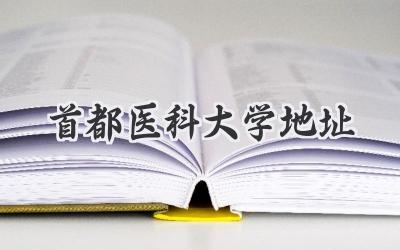 首都医科大学地址